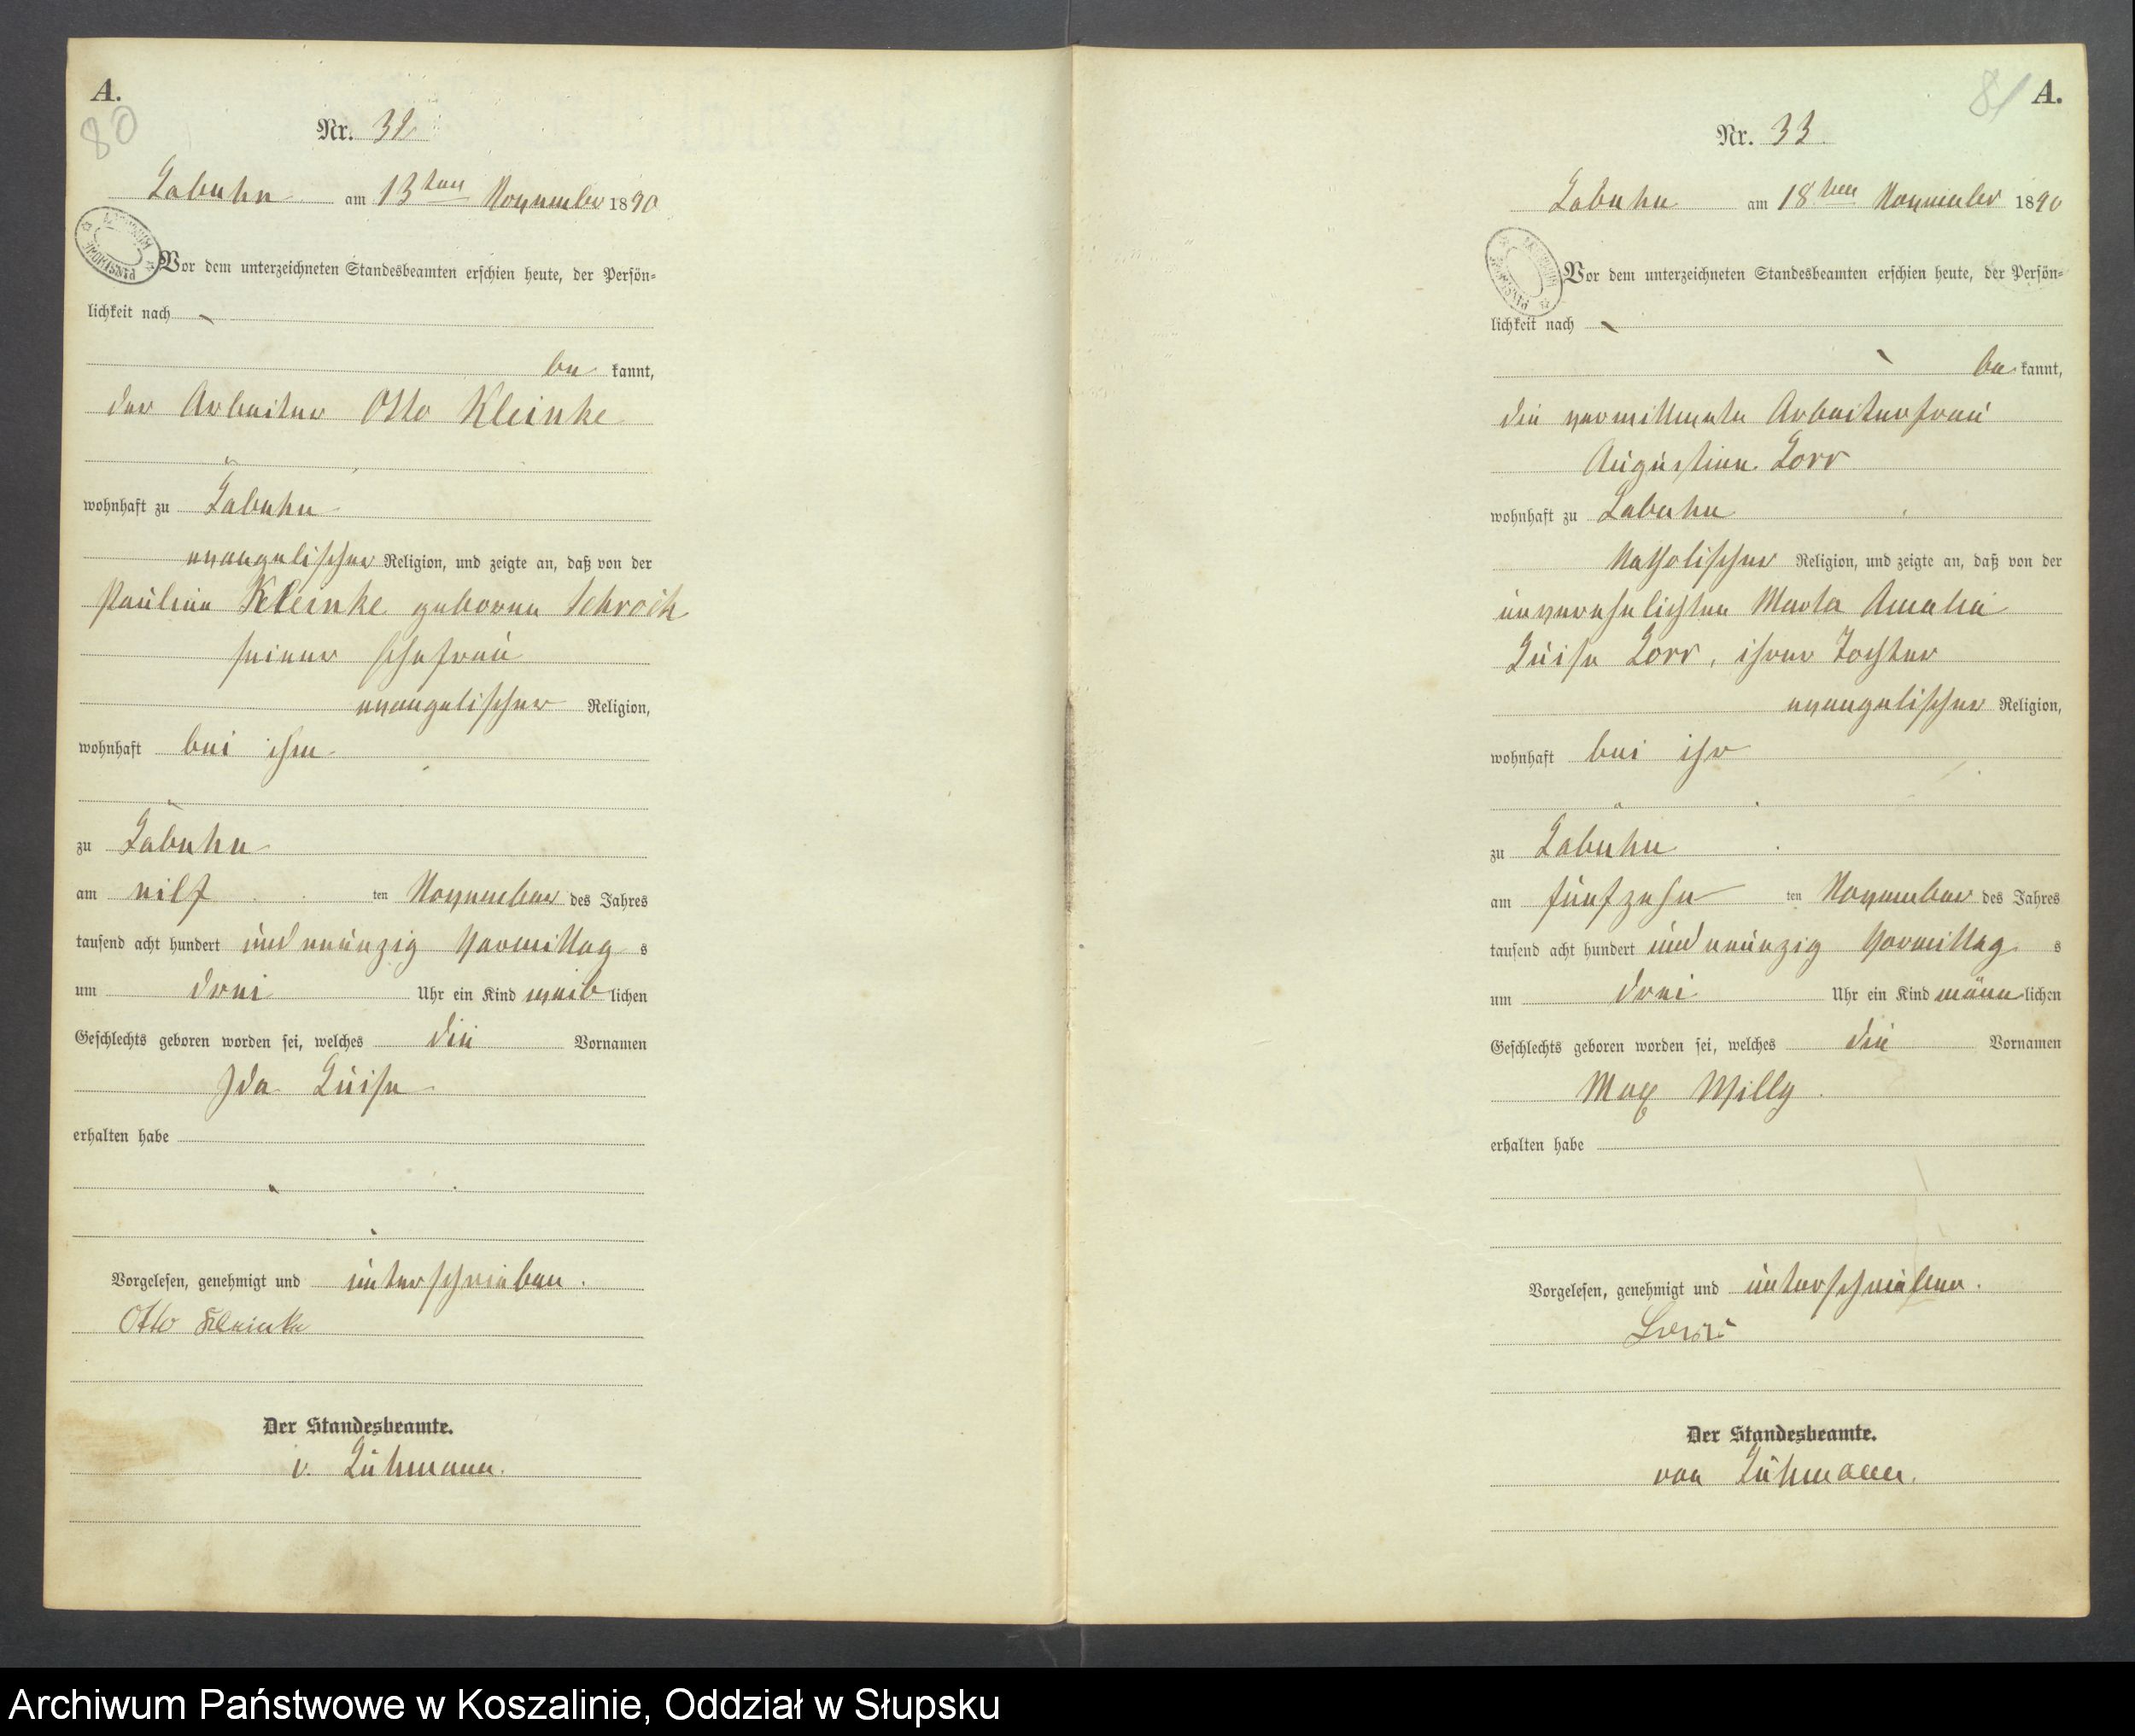 A.
80
Nr. 32
Labuhn am 13ten November 1890
Vor dem unterzeichneten Standesbeamten erschien heute, der Persön-
lichkeit nach
be kannt,
der Arbeiter Otto Kleinke
wohnhaft zu Labuhn
evangelischer Religion, und zeigte an, daß von der
Pauline Kleinke geborne Schrock
seiner Ehefrau
evangelischer Religion,
wohnhaft bei ihm
zu Labuhn
am eilf ten November des Jahres
tausend acht hundert und neunzig Vormittag s
um drei Uhr ein Kind weib lichen
Geschlechts geboren worden sei, welches die Vornamen
Ida Luise
erhalten habe
Vorgelesen, genehmigt und unterschrieben.
Otto Kleinke
Der Standesbeamte.
v. Lühmann.
81
A.
Nr. 33.
Labuhn am 18ten November 1890
Vor dem unterzeichneten Standesbeamten erschien heute, der Persön-
lichkeit nach
be kannt,
die verwittwete Arbeiterfrau
Augustine Lorr
wohnhaft zu Labuhn
katholischer Religion, und zeigte an, daß von der
unverehelichten Marta Amalie
Luise Lorr, ihrer Tochter
evangelischer Religion,
wohnhaft bei ihr
zu Labuhn
am fünfzehn ten November des Jahres
tausend acht hundert und neunzig Vormittag s
um drei Uhr ein Kind männ lichen
Geschlechts geboren worden sei, welches die Vornamen
Max Willy
erhalten habe
Vorgelesen, genehmigt und unterschrieben.
Lorr
Der Standesbeamte.
von Lühmann.
Archiwum Państwowe w Koszalinie, Oddział w Słupsku